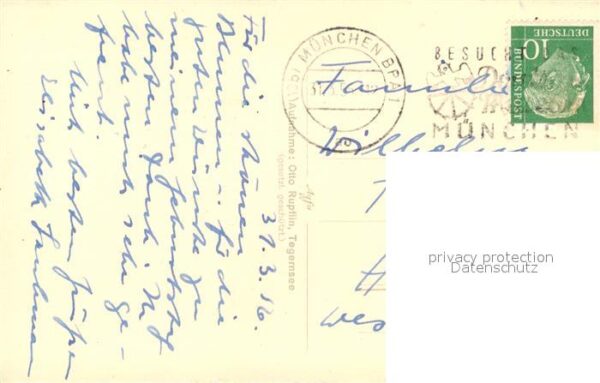 31. 3. 56.
Für die schönen
Blumen u. für die
guten Wünsche zu
meinem Geburtstag
besten Dank. Ich
habe mich sehr ge-
freut.
Mit besten Grüßen
Elisabeth
Agfa
(gesetzl. geschützt.)
Aufnahme: Otto Rupflin, Tegernsee
MÜNCHEN BPA 1
BESUCHT
MÜNCHEN
10
DEUTSCHE
BUNDESPOST
Familie
Wilhelm
privacy protection
Datenschutz